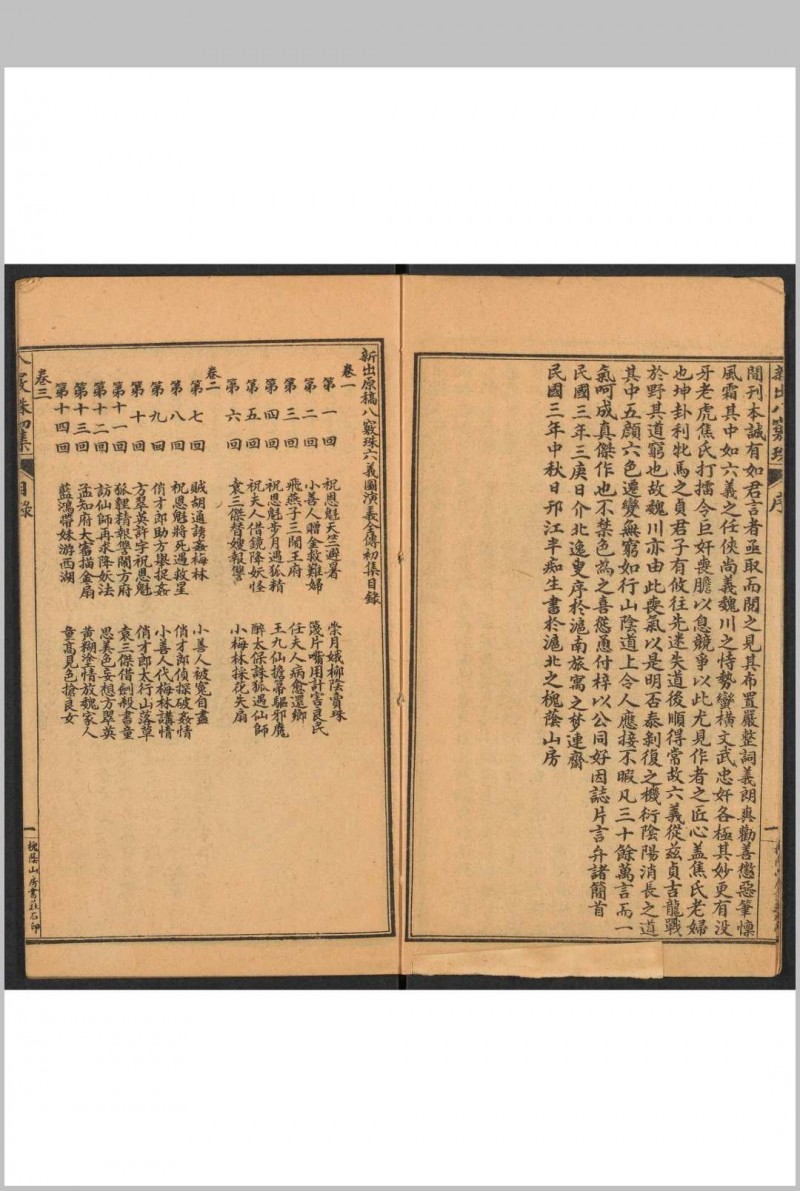 新出八竅珠
序
間刊本誠有如君言者亟取而閱之見其布置嚴整詞義朗爽勸善懲惡筆懍
風霜其中如六義之任俠尚義魏川之恃勢蠻橫文武忠奸各極其妙更有没
牙老虎焦氏打擂令巨奸喪膽以息競爭以此尤見作者之匠心蓋焦氏老婦
也坤卦利牝馬之貞君子有攸往先迷失道後順得常故六義從茲貞吉龍戰
於野其道窮也故魏川亦由此喪氣以是明否泰剝復之機衍陰陽消長之道
其中五顏六色遷變無窮如行山陰道上令人應接不暇凡三十餘萬言而一
氣呵成真傑作也不禁色為之喜慫恿付梓以公同好因誌片言弁諸簡首
民國三年三庚日介北逸叟序於滬南旅寓之夢連齋
民國三年中秋日邗江半痴生書於滬北之槐蔭山房
新出原稿八竅珠六義圖演義全傳初集目錄
卷一
第一回 祝恩魁天竺避暑 榮月娥柳陰賣珠
第二回 小善人贈金救難婦 篾片嘴用計害良民
第三回 飛燕子三鬧王府 任夫人病愈還鄉
第四回 祝恩魁步月遇狐精 王九仙擔籌驅邪魔
第五回 祝夫人借鏡降妖怪 醉太保誅狐遇仙師
第六回 袁三傑替嫂報讐 小梅林採花失扇
卷二
第七回 賊胡通誘姦梅林 小善人被寃自盡
第八回 祝恩魁將死遇救星 俏才郎偵探破姦情
第九回 俏才郎助方舉捉姦 小善人代梅林講情
第十回 方翠英許字祝恩魁 俏才郎太行山落草
第十一回 狐貍精報讐鬧方府 袁三傑借劍殺書童
第十二回 訪仙師再求降妖法 思美色妄想方翠英
第十三回 孟知府大審描金扇 黃糊塗情放魏家人
第十四回 藍鴻帶妹游西湖 童高見色搶良女
卷三
八竅珠初集
目錄
一
槐蔭山房書莊石印